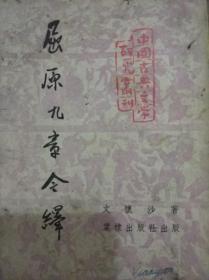 屈原九章今繹
中國古典文學
研究叢刊
文懷沙著
棠棣出版社出版